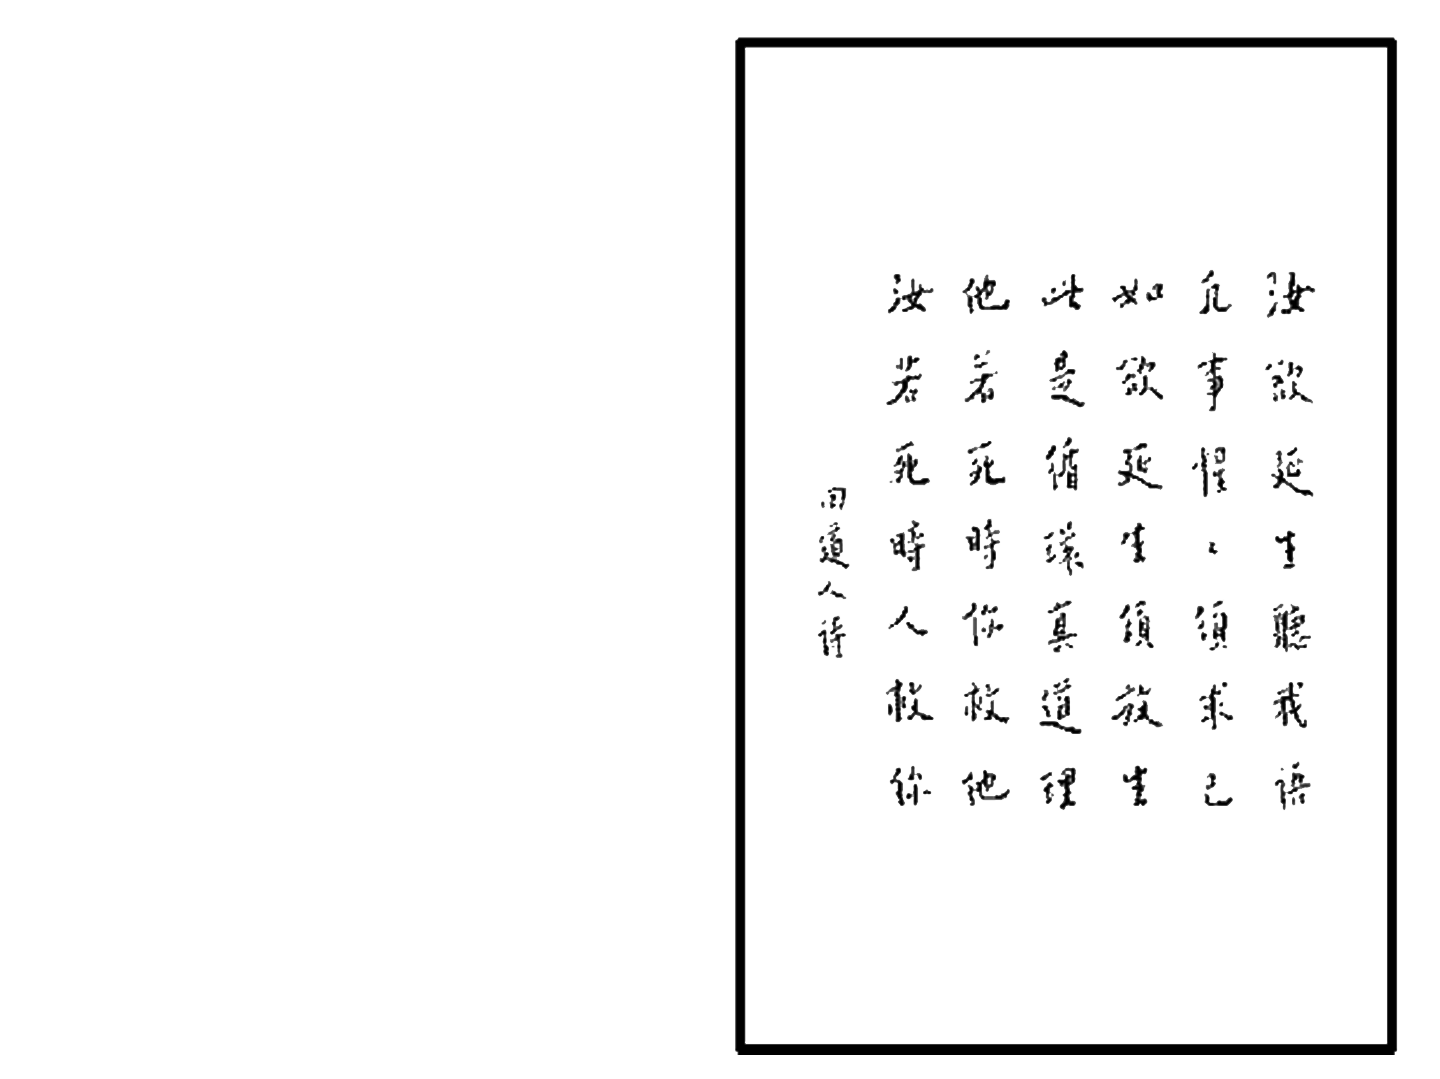 汝欲延生聽我語
凡事惺〻須求己
如欲延生須放生
此是循環真道理
他若死時你救他
汝若死時人救你
回道人詩